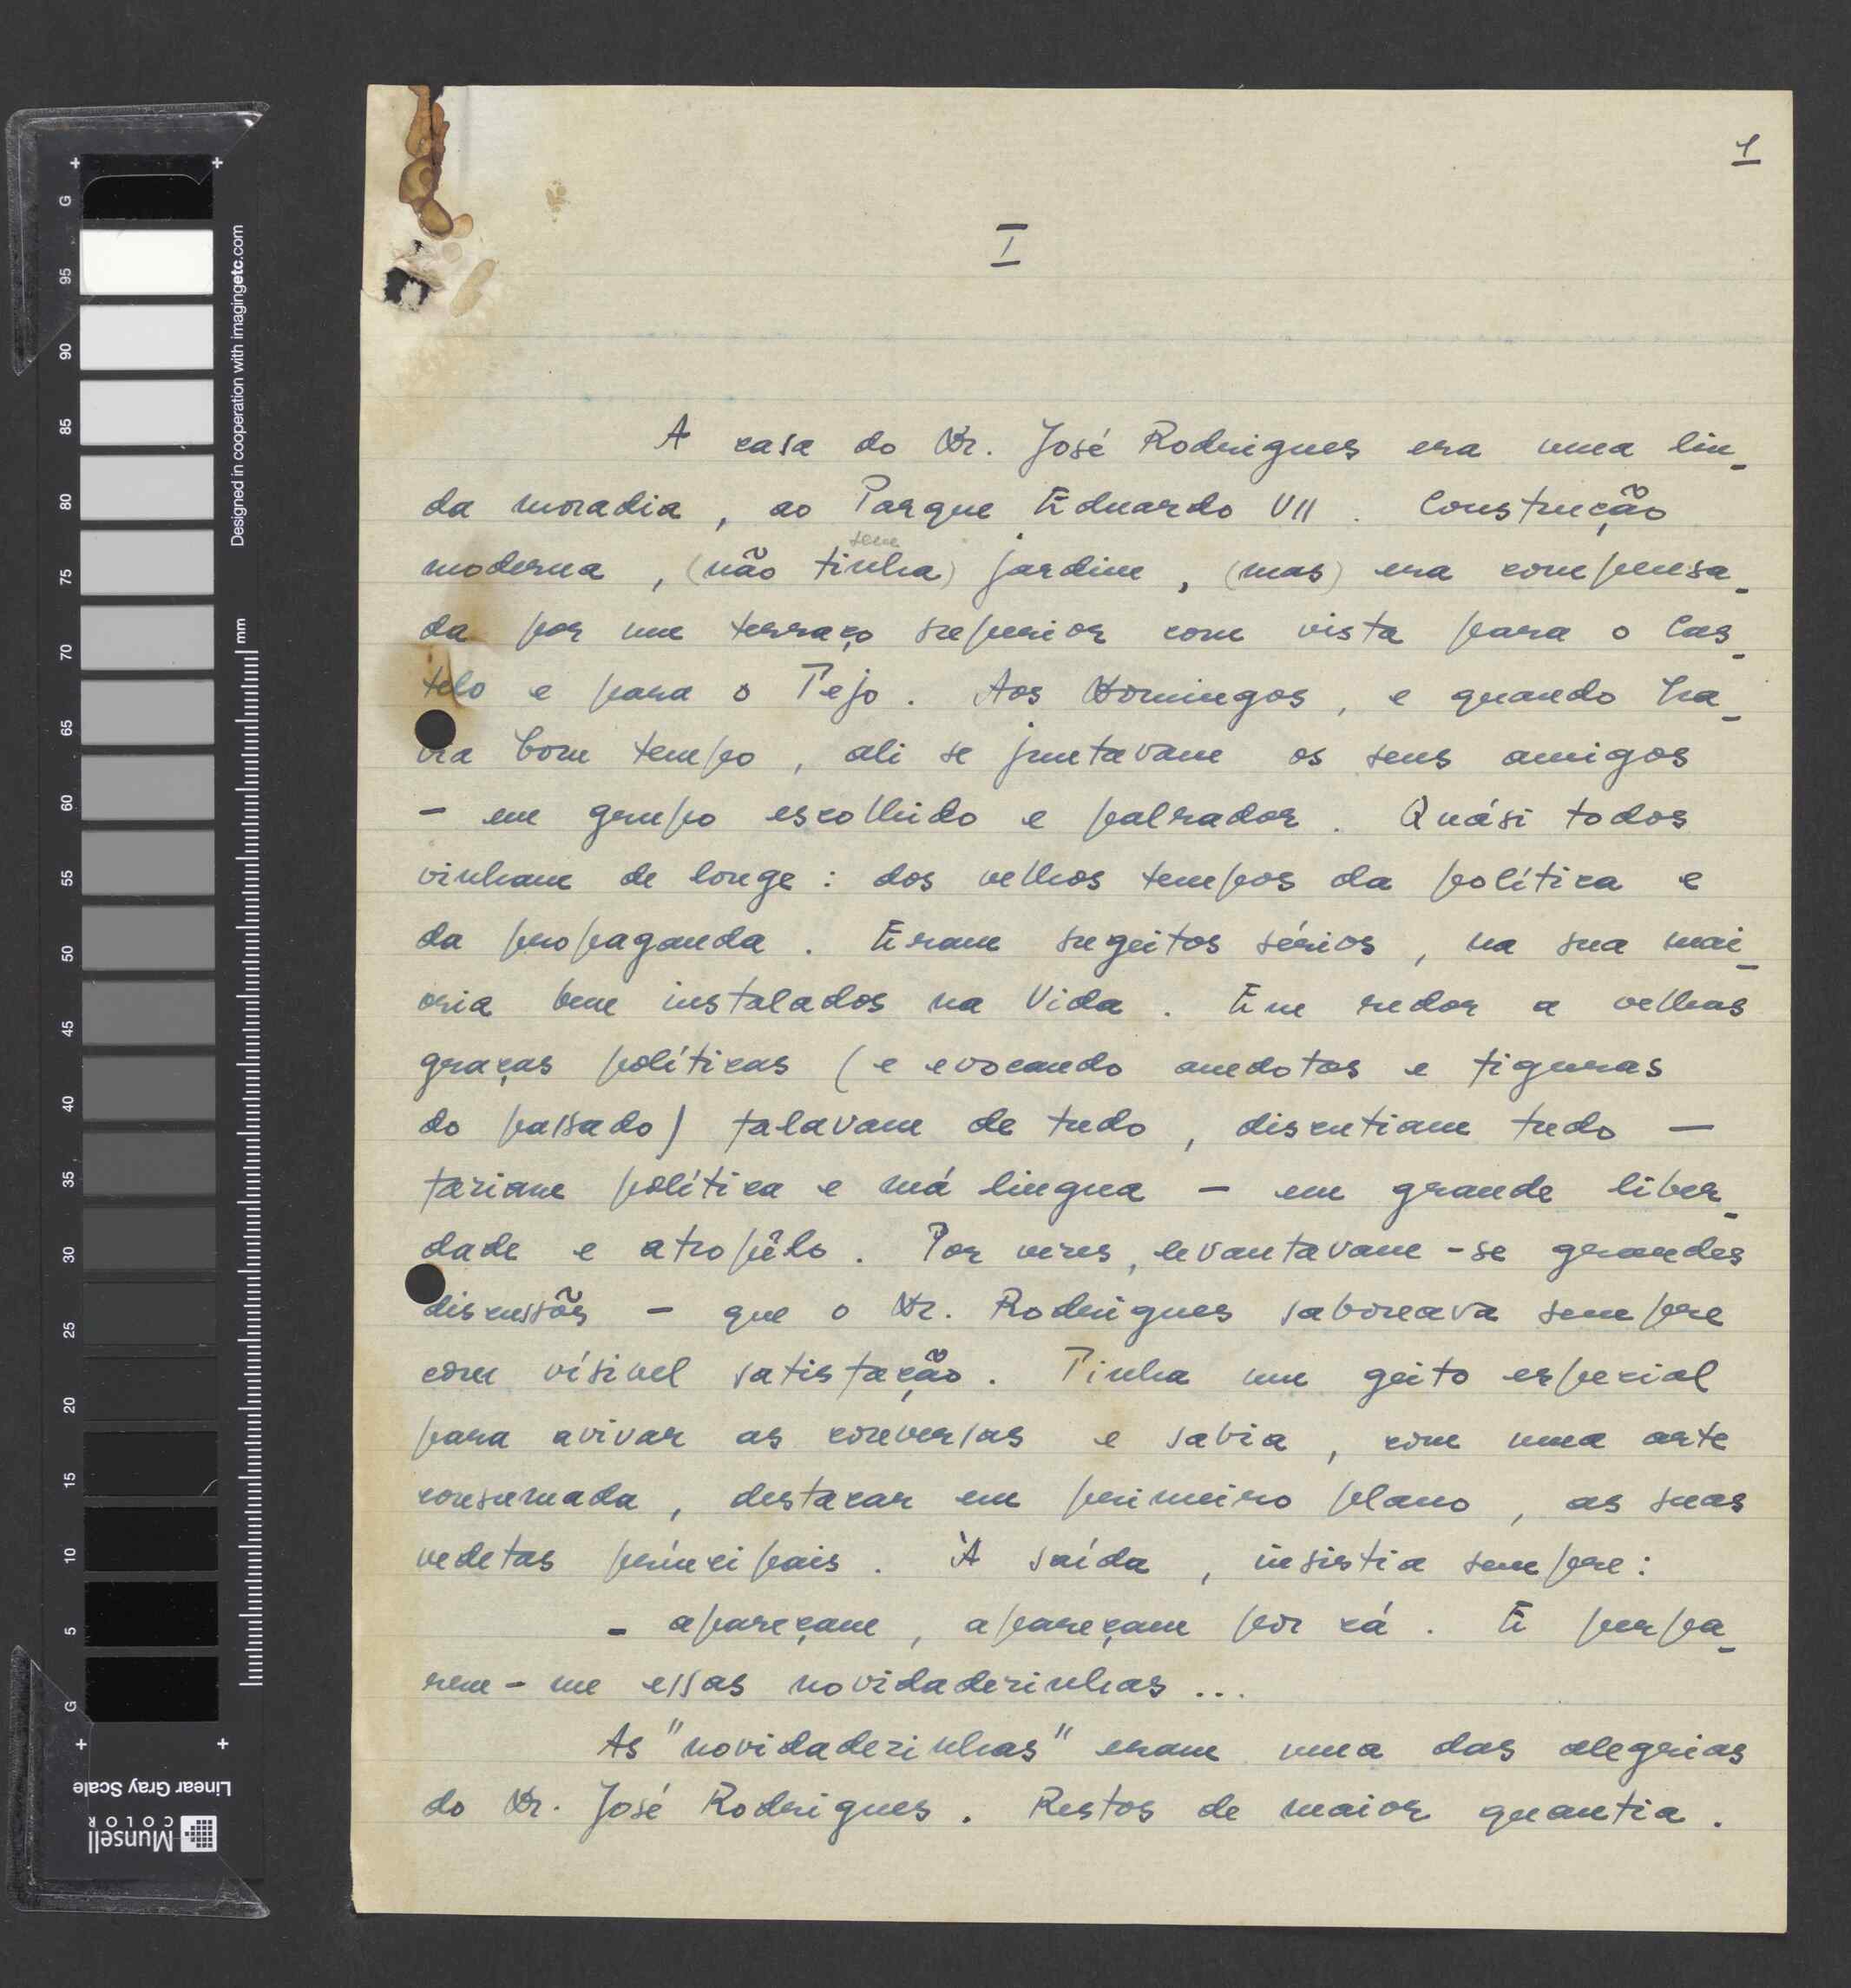 1
I
A casa do Dr. José Rodrigues era uma lin-
da moradia, ao Parque Eduardo VII. Construção
sem
moderna, (não tinha) jardim, (mas) era compensa-
da por um terraço superior com vista para o Cas-
telo e para o Tejo. Aos Domingos, e quando ha-
via bom tempo, ali se juntavam os seus amigos
- em grupo escolhido e palrador. Quási todos
vinham de longe: dos velhos tempos da política e
da propaganda. Eram sugeitos sérios, na sua mai-
oria bem instalados na Vida. Em redor a velhas
graças políticas (e evocando anedotas e figuras
do passado) falavam de tudo, discutiam tudo —
faziam política e má lingua - em grande liber-
dade e atropêlo. Por vezes, levantavam-se grandes
discussões - que o Dr. Rodrigues saboreava sempre
com vísivel satisfação. Tinha um geito especial
para avivar as conversas e sabia, com uma arte
consumada, destacar em primeiro plano, as suas
vedetas principais. À saída, insistia sempre:
- apareçam, apareçam por cá. E perpa-
rem-me essas novidadezinhas...
As "novidadezinhas" eram uma das alegrias
do Dr. José Rodrigues. Restos de maior quantia.
G
95
90
85
80
75
70
65
60
55
50
45
40
35
30
25
20
15
10
5
G
mm
Designed in cooperation with imagingetc.com
Linear Gray Scale
Munsell
COLOR